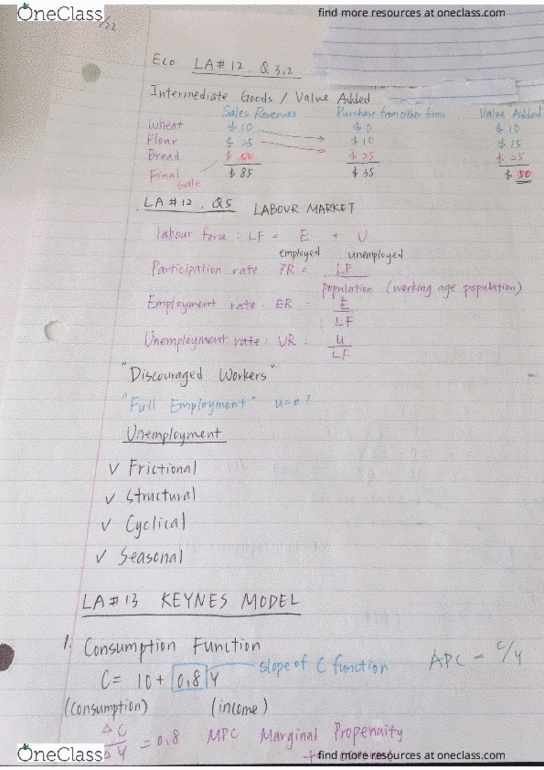 OneClass
find more resources at oneclass.com
/22
Eco LA#12 Q3.2
Intermediate Goods / Value Added
Sales Revenues Purchase from other firms Value Added
Wheat $10 $0 $10
Flour $25 $10 $15
Bread $50 $25 $25
Final Sale $85 $35 $50
LA#12. Q5 LABOUR MARKET
labour force : LF = E + U
employed unemployed
Participation rate PR = LF
population (working age population)
Employment rate : ER = E
LF
Unemployment rate : UR = U
LF
"Discouraged Workers"
"Full Employment" u=0?
Unemployment
✓ Frictional
✓ Structural
✓ Cyclical
✓ Seasonal
LA#13 KEYNES MODEL
1. Consumption Function
C = 10 + 0.8 Y slope of C function APC = C/Y
(consumption) (income)
ΔC
ΔY = 0.8 MPC Marginal Propensity
OneClass
find more resources at oneclass.com